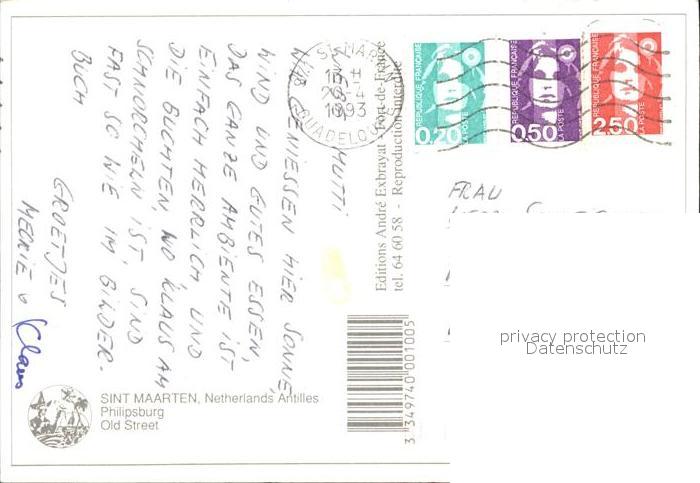 MUTTI
WIR GENIESSEN HIER SONNE,
WIND UND GUTES ESSEN,
DAS GANZE AMBIENTE IST
EINFACH HERRLICH UND
DIE BUCHTEN, WO KLAUS AM
SCHNORCHELN IST SIND
FAST SO WIE IM BILDER.
BUCH
GROETJES
MECKIE u
Klaus
ST MARTIN
1993
GUADELOUPE
REPUBLIQUE FRANÇAISE
0,20
LA POSTE
REPUBLIQUE FRANÇAISE
0,50
LA POSTE
REPUBLIQUE FRANÇAISE
2,50
LA POSTE
Editions André Exbrayat - Fort-de-France
tel. 64 60 58 - Reproduction interdite
FRAU
privacy protection
Datenschutz
3 349740 001005
SINT MAARTEN, Netherlands Antilles
Philipsburg
Old Street